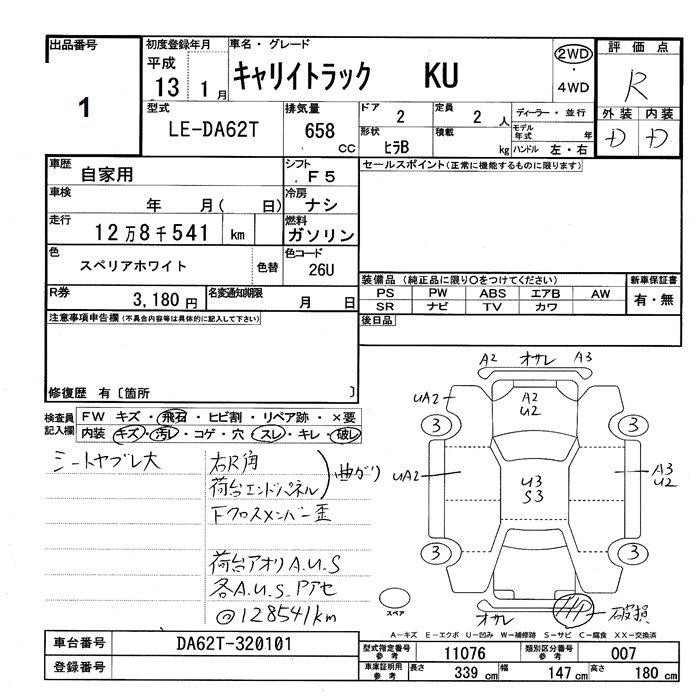 出品番号 初度登録年月 車名・グレード 2WD 評価点
平成
13 1月 キャリイトラック KU ・ R
4WD
1 型式 排気量 ドア 2 定員 2人 ディーラー・並行 外装 内装
LE-DA62T 658 CC 形状 ヒラB 積載 kg モデル年式 年 D D
ハンドル 左・右
車歴 自家用 シフト F5 セールスポイント(正常に機能するものに限ります)
車検 年 月( 日) 冷房 ナシ
走行 12万8千541 km 燃料 ガソリン
色 スペリアホワイト 色替 色コード 26U
装備品(純正品に限り○をつけてください) 新車保証書
R券 3,180円 名変通知期限 月 日 PS PW ABS エアB AW 有・無
SR ナビ TV カワ
注意事項申告欄(不具合内容等は具体的に記入して下さい) 後日品
修復歴 有〔箇所 〕
検査員記入欄 FW キズ・飛石・ヒビ割・リペア跡・×要
内装 キズ・汚レ・コゲ・穴・スレ・キレ・破レ
シートヤブレ大 右R角
荷台エンドパネル)曲がり
Fクロスメンバー歪
荷台アオリA.U.S
各A.U.S.Pアセ
@128541km
A2 オサレ A3
UA2 A2 U2
3 3
UA2 U3 S3 A3 U2
3 3
スペア オサレ 破損
A-キズ E-エクボ U-凹み W-補修跡 S-サビ C-腐食 XX-交換済
車台番号 DA62T-320101 型式指定番号参考 11076 類別区分番号参考 007
登録番号 車庫証明用参考 長さ 339cm 幅 147cm 高さ 180cm